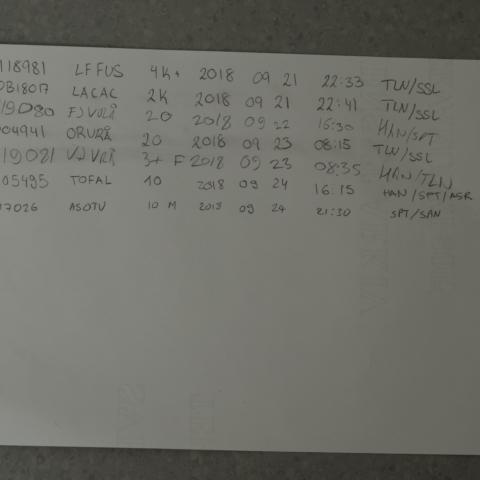 118981 LFFUS 4K+ 2018 09 21 22:33 TLN/SSL
DB18017 LACAC 2K 2018 09 21 22:41 TLN/SSL
19080 FJVURÅ 20 2018 09 22 16:30 HAN/SPT
04941 ORURÅ 20 2018 09 23 08:15 TLN/SSL
19081 VJVRÅ 3+ F 2018 09 23 08:35 HAN/TLN
05495 TOFAL 10 2018 09 24 16:15 HAN/SPT/ASR
17026 ASOTU 10 M 2018 09 24 21:30 SPT/SAN